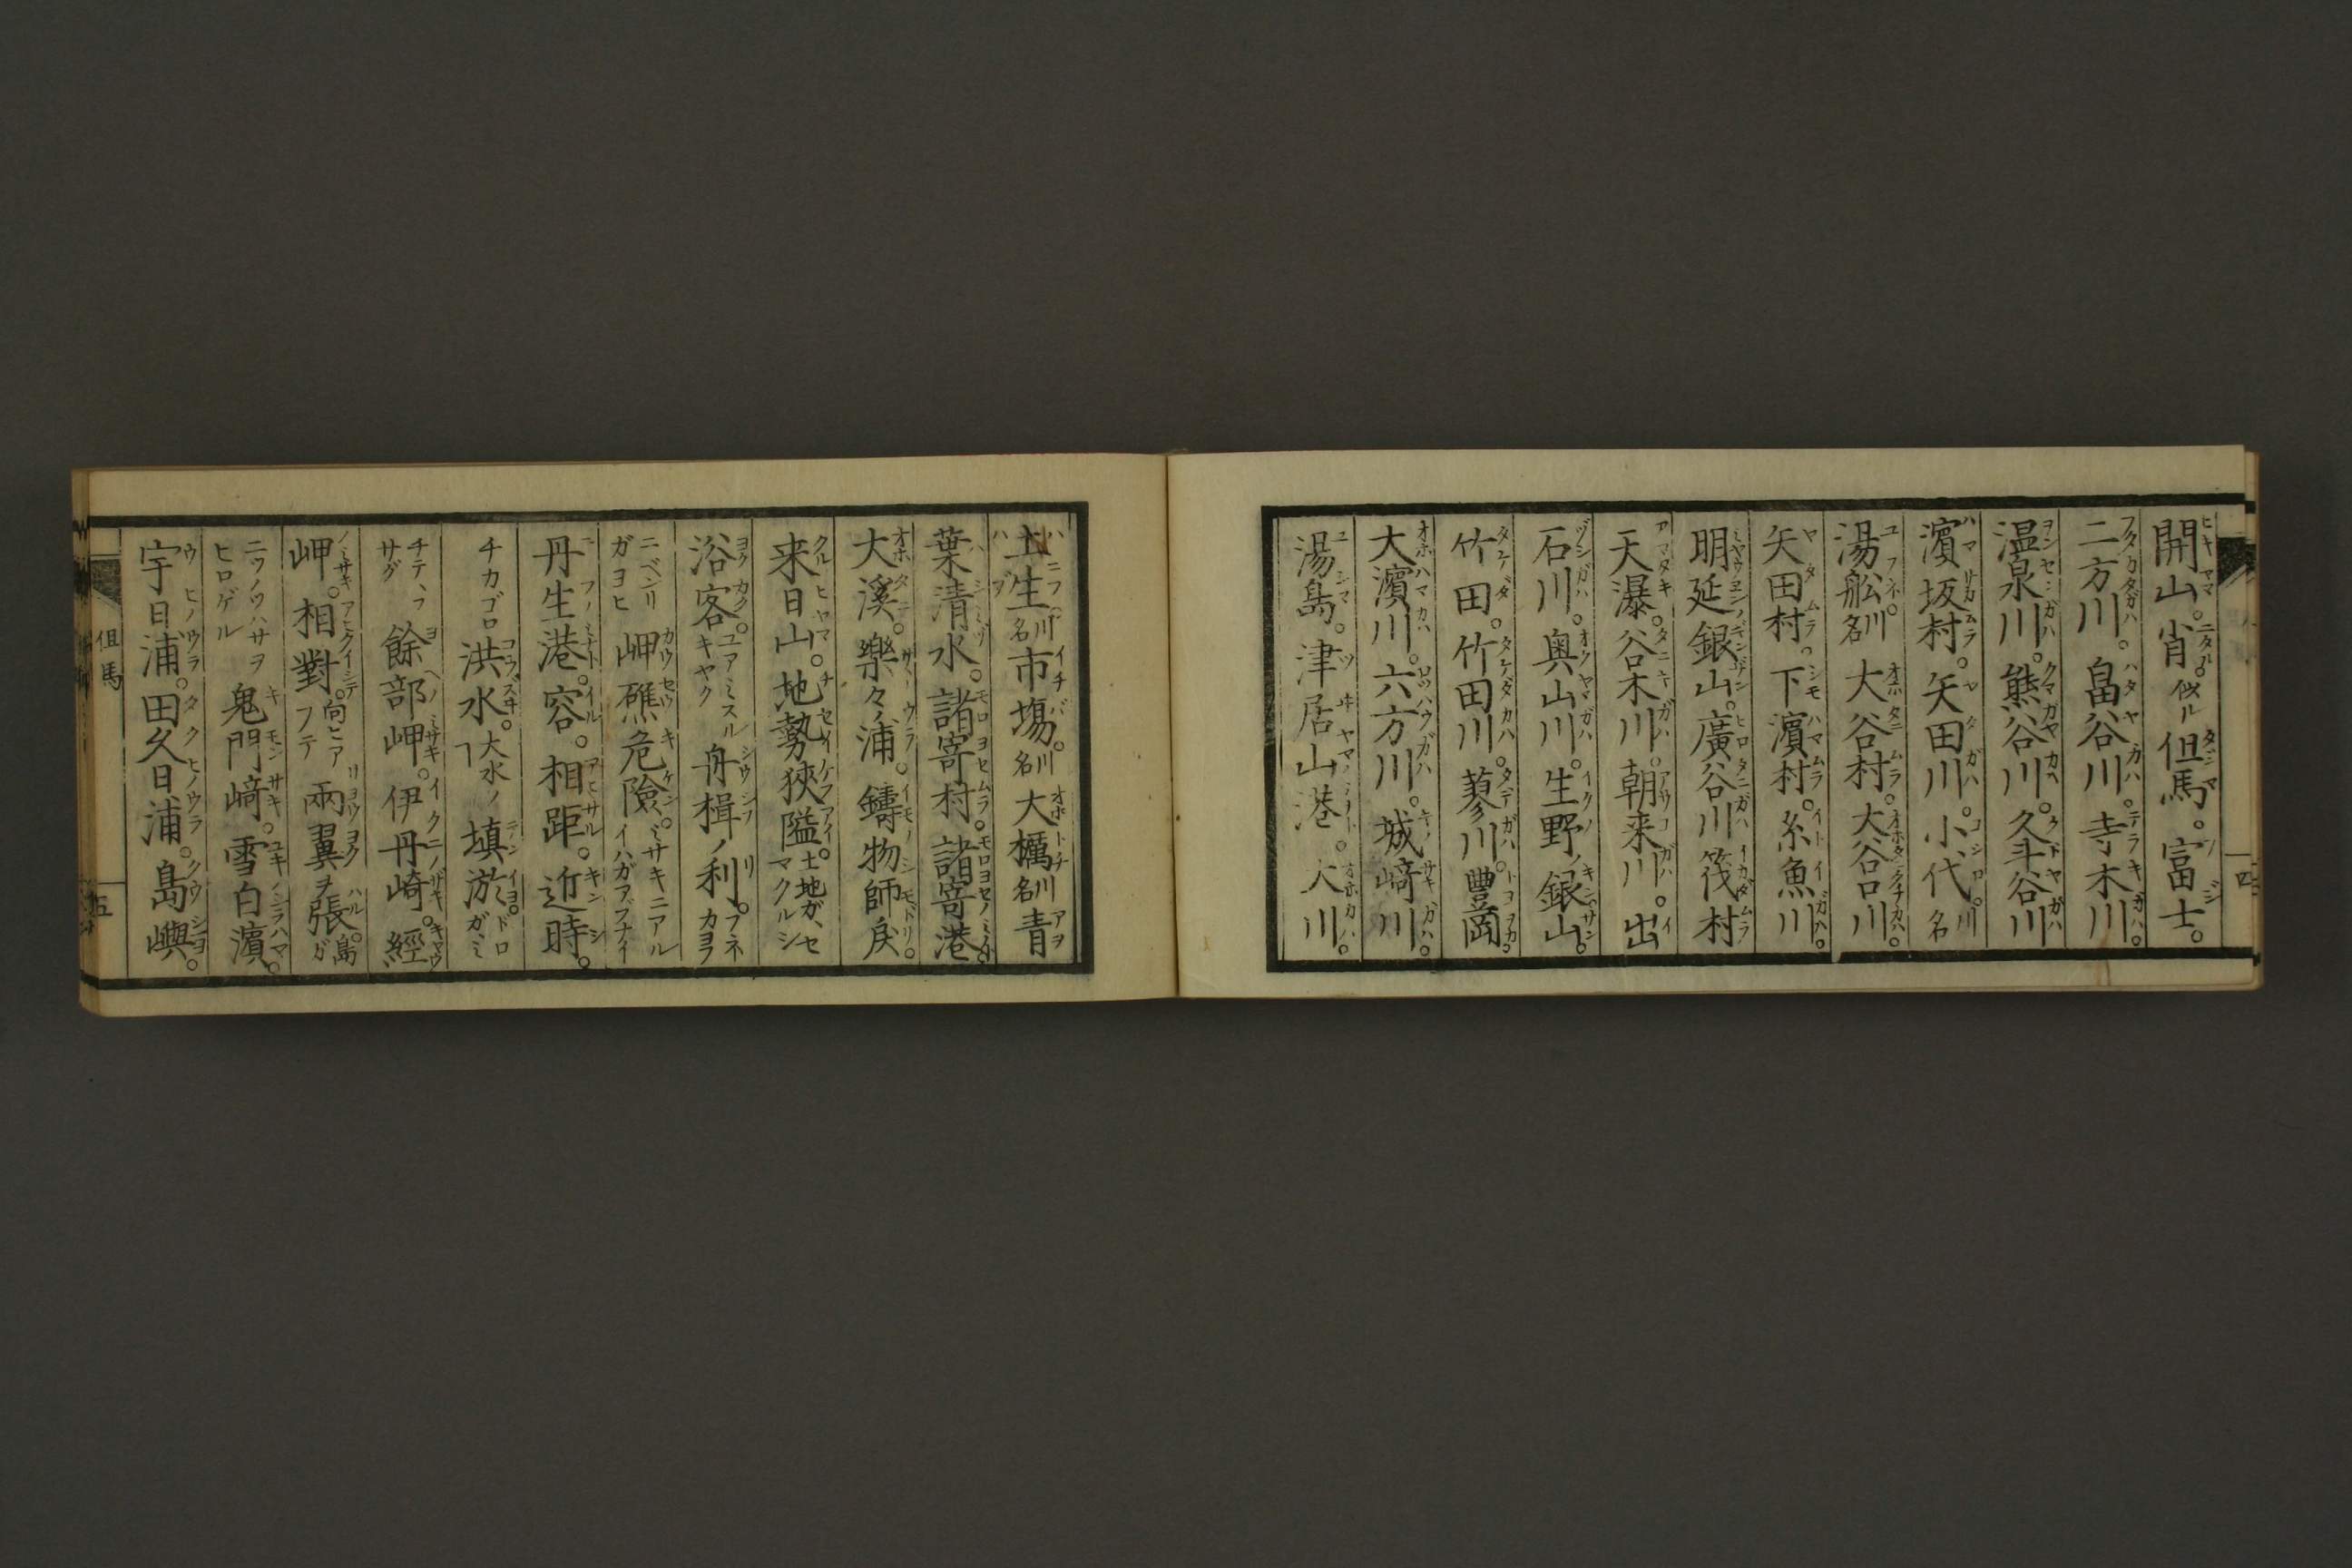 開山。肖。似ル但馬。富士。
二方川。畠谷川。寺木川。
温泉川。熊谷川。久斗谷川
濱坂村。矢田川。小代。川名
湯舩。川名大谷村。大谷口川。
矢田村。下濱村。糸魚川。
明延銀山。廣谷川筏村
天瀑。谷木川。朝来川。出
石川。奥山川。生野ノ銀山。
竹田。竹田川。蓼川。豐岡。
大濱川。六方川。城﨑川。
湯島。津居山港。大川。
土生川名市場。川名大櫔川名青
葉清水。諸寄村。諸寄港。
大溪。樂々浦。鑄物師戻。
来日山。地勢狹隘。土地ガ、セマクルシ
浴客。ユアミスルキヤク舟楫ノ利。フネカヨフ
ニベンリガヨヒ岬礁危險。ミサキニアルイハガアブナイ
丹生港。容。相距。近時。
チカゴロ洪水。大水ノ填淤。ドロガミ
チテ、フサグ餘部岬。伊丹崎。經
岬。相對。向ヒアフテ兩翼ヲ張。島ガ
ニツノウハサヲヒロゲル鬼門﨑。雪白濱。
宇日浦。田久日浦。島嶼。
但馬
五
四